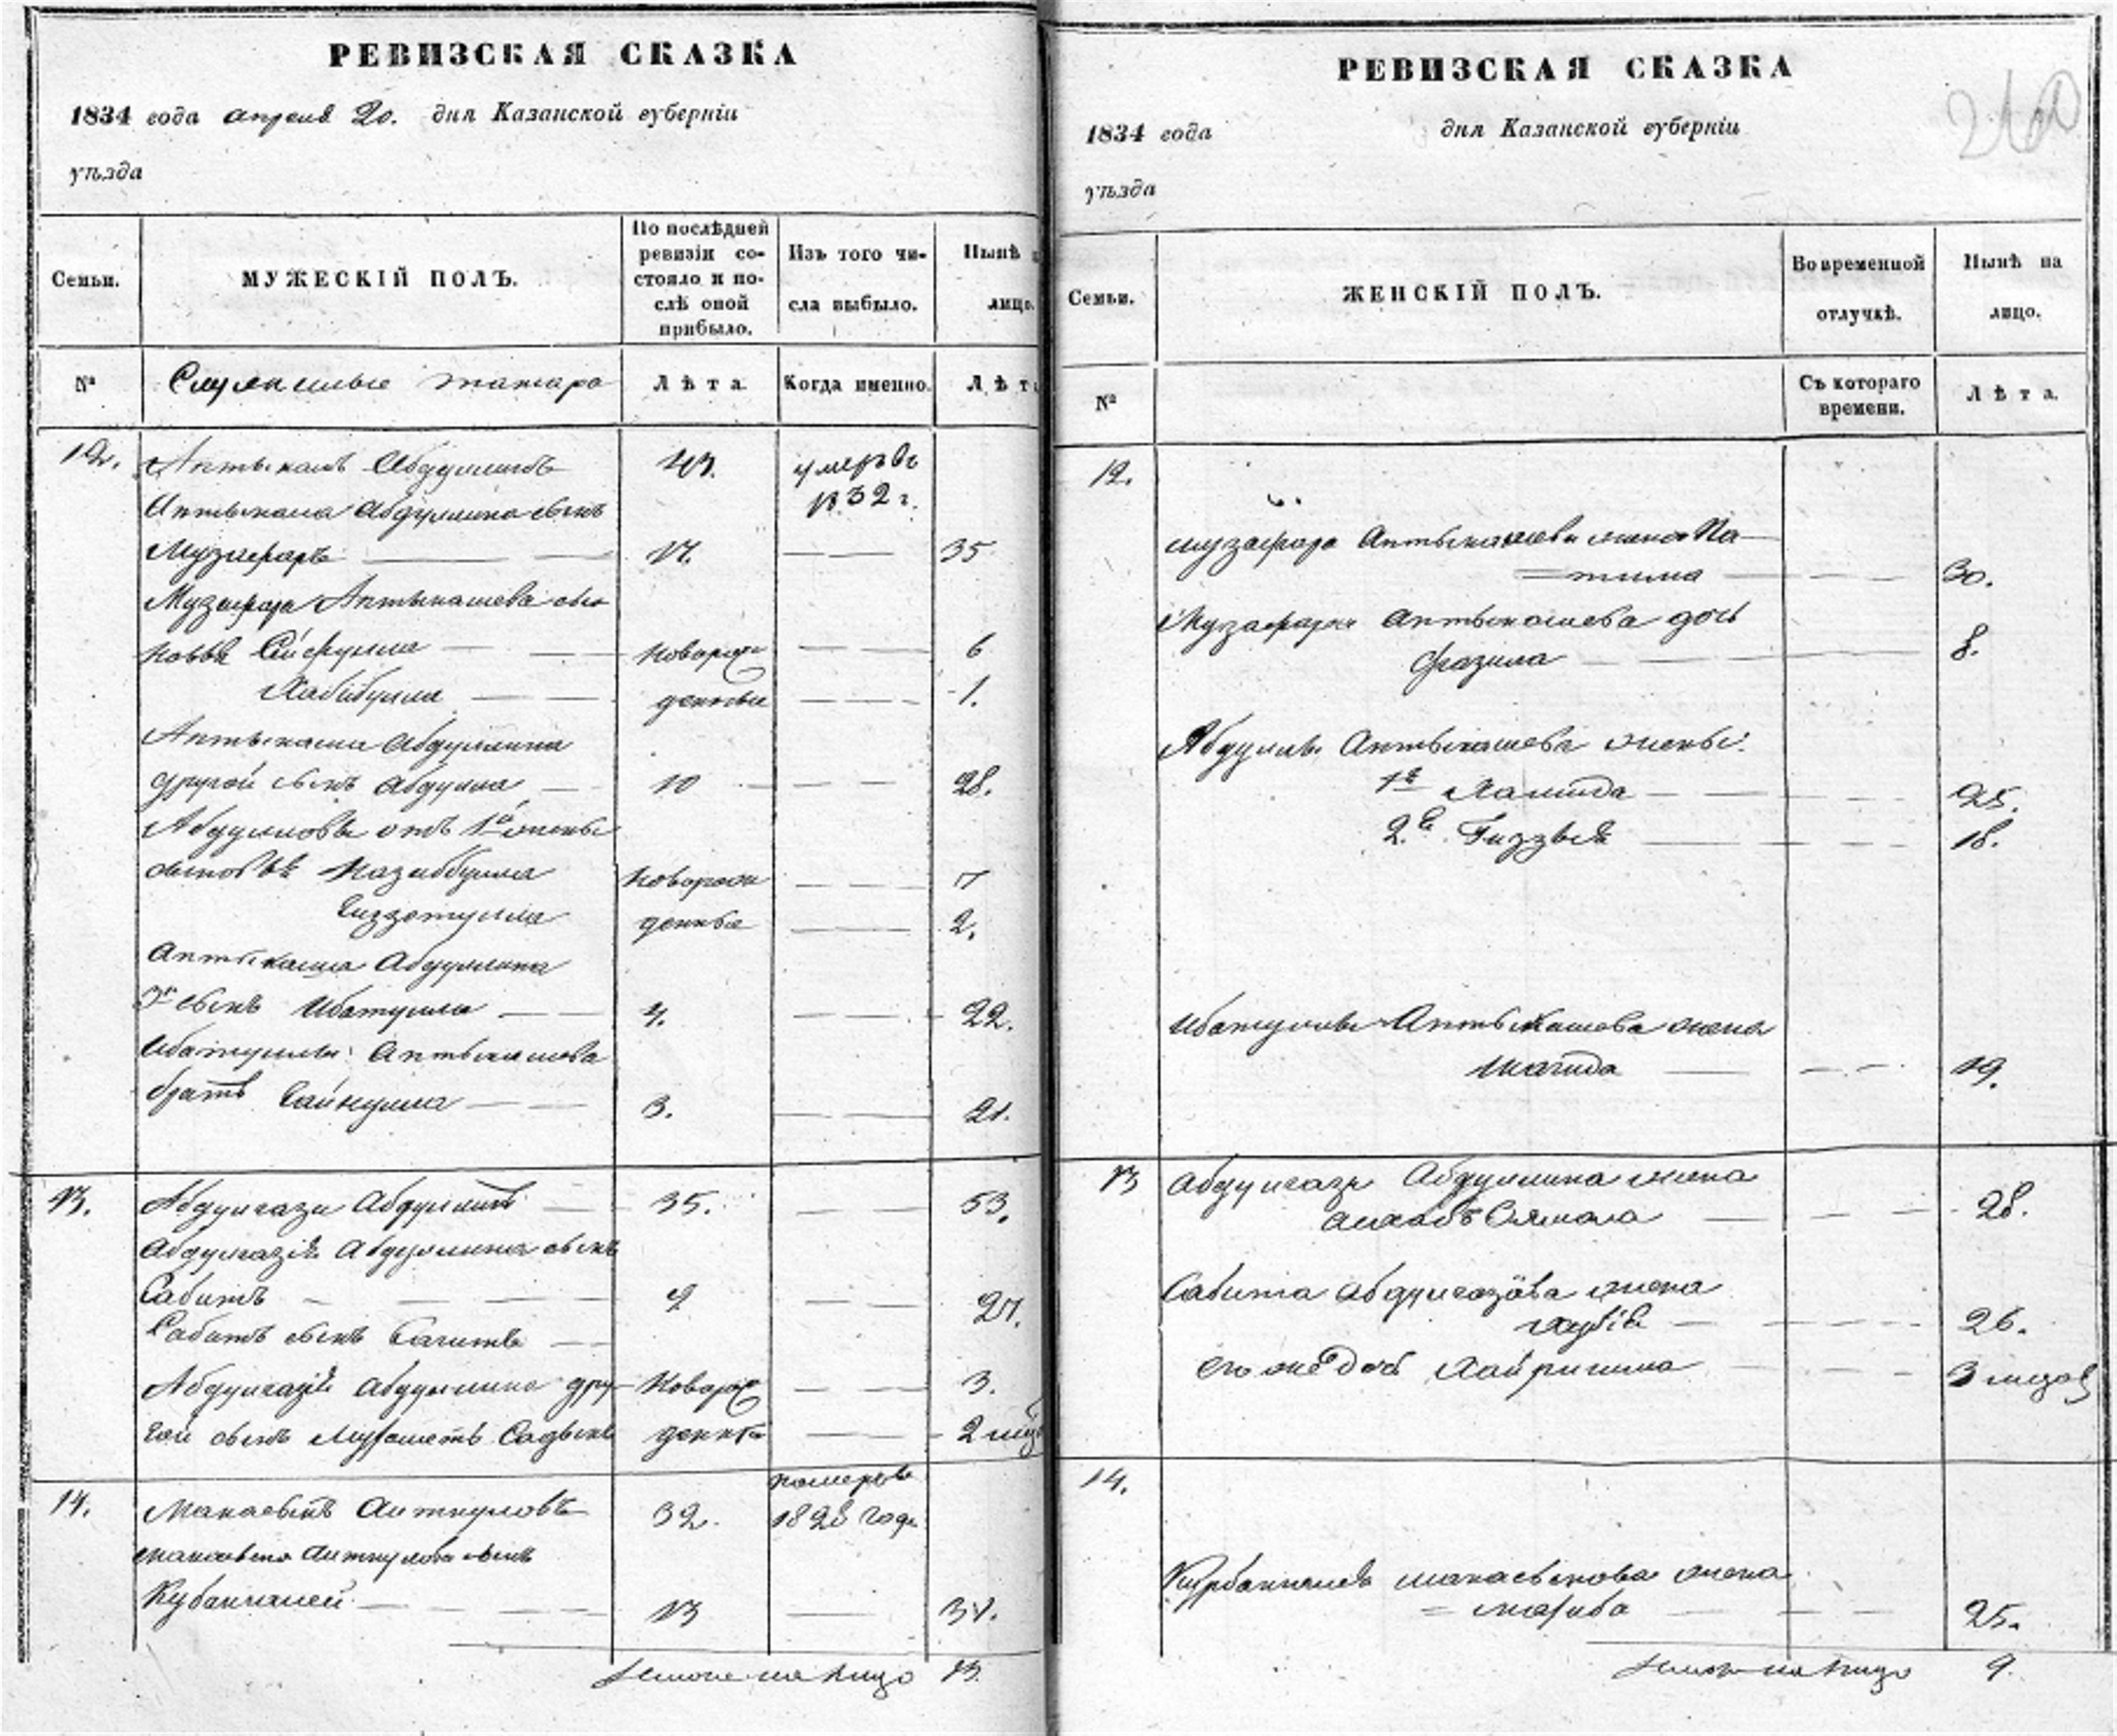 РЕВИЗСКАЯ СКАЗКА
1834 года апреля 20. дня Казанской губерніи
уѣзда
Семьи.
МУЖЕСКІЙ ПОЛЪ.
По послѣдней
ревизіи со-
стояло и по-
слѣ оной
прибыло.
Изъ того чи-
сла выбыло.
Нынѣ
лицо.
№
Служилые татара
Лѣта
Когда именно.
Лѣт
12. Аптыкашъ Абдуллинъ 43. умеръ въ
1832 г.
Аптыкаша Абдуллина сынъ
Музафаръ 17. 35
Музафара Аптыкашева сы-
новья Сейфулла новорож 6
Хабибулла денныи 1.
Аптыкаша Абдуллина
другой сынъ Абдулла 10 28.
Абдулловы отъ 1й жены
сыновья Назыббулла новорож 7
Гиззетулла денные 2.
Аптыкаша Абдуллина
3й сынъ Ибатулла 4. 22.
Ибатуллы Аптыкашева
братъ Сайнулла 3. 21.
13. Абдулгази Абдуллинъ 35. 53.
Абдулгазія Абдуллина сынъ
Сабитъ 9 27.
Сабитъ сынъ Сагитъ
Абдулгазія Абдуллина дру- новорож 3.
гой сынъ Мухаметъ Садыкъ денны 2
14. Манасыпъ Аиткуловъ 32. померъ въ
1828 году
Манасыпа Аиткулова сынъ
Кубангалей 13 31.
Итого на лицо 13.
РЕВИЗСКАЯ СКАЗКА
1834 года дня Казанской губерніи
уѣзда
260
Семьи.
ЖЕНСКІЙ ПОЛЪ.
Во временной
отлучкѣ.
Нынѣ на
лицо.
№
Съ котораго
времени.
Лѣта.
12.
Музафара Аптыкашева жена Па-
тима 30.
Музафара Аптыкашева дочь
Фазила 8.
Абдуллы Аптыкашева жены:
1я Халида 25.
2я Гиззыя 18.
Ибатуллы Аптыкашева жена
Магида 19.
13 Абдулгазы Абдуллина жена
28.
Сабита Абдулгазіева жена
Хубія 26.
3
14.
Курбангалея Манасыпова жена
Махиба 25.
Итого на лицо 9.